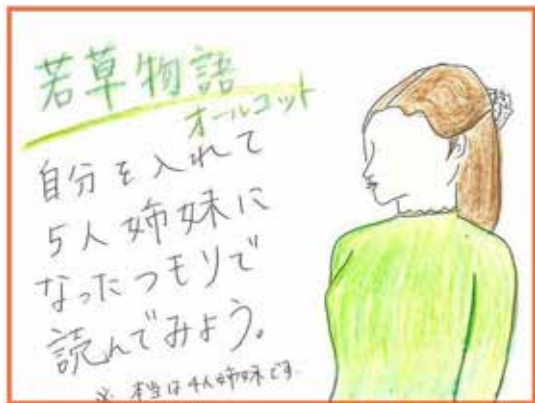 若草物語
オールコット
自分を入れて
5人姉妹に
なったつもりで
読んでみよう。
※ 本当は4人姉妹です。